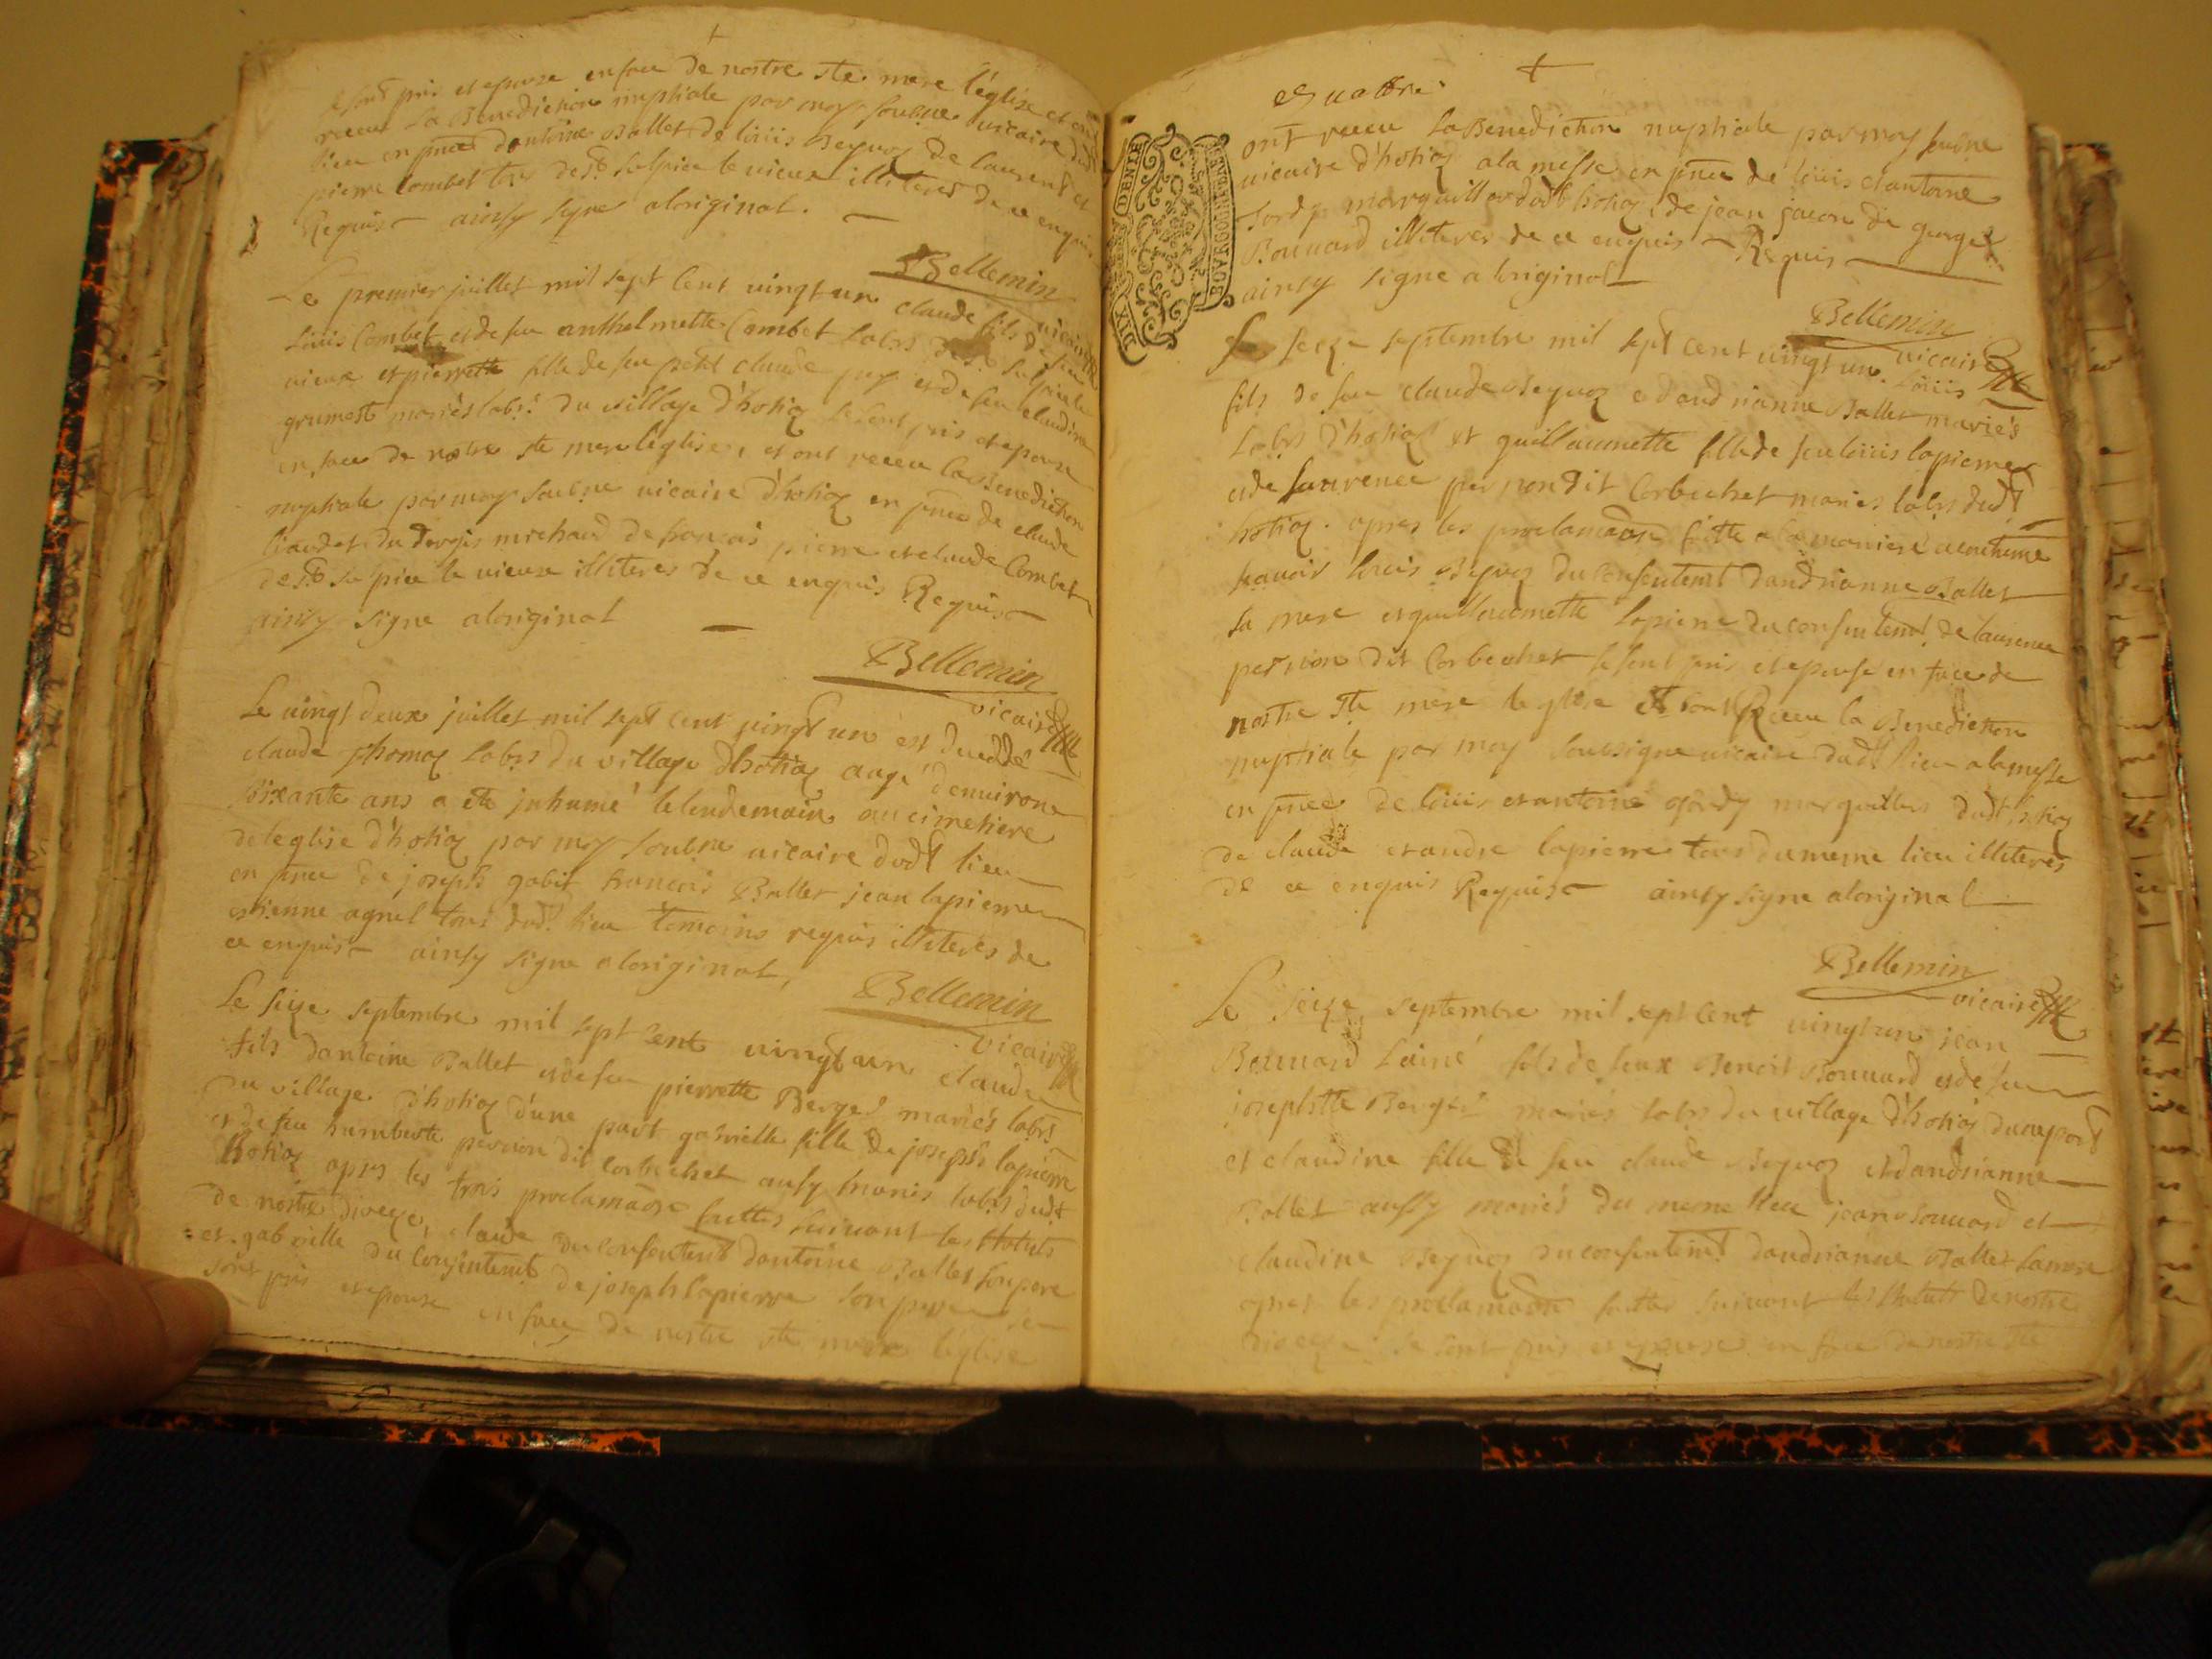 se sont pris et epouse en face de nostre ste mere l'église et ont
receu la Benediction nuptiale par moy soubne vicaire dudt
lieu en pnce dantoine Ballet de loüis Beyvoz de laurent et
pierre Combet tous de st sulpice le vieux illiteres de ce enquis
Requis ainsy signe aloriginal.
Bellemin
vicaire
Le premier juillet mil sept Cent vingt un claude fils de feu
Loüis Combet et de feu anthelmette Combet labrs de st sulpice le
vieux et pierrette fille de feu petit claude puy et de feu claudine
grumest mariés labrs du village d'hotiaz se sont pris et epouse
en face de nostre ste mere léglise, et ont receu la Benediction
nuptiale par moy soubne vicaire d'hotiaz en pnce de claude
de francois pierre et claude Combet
de st sulpice le vieux illiteres de ce enquis Requis
ainsy signe aloriginal
Bellemin
vicaire
Le vingt deux juillet mil sept cent vingt un est decedé
claude thomaz labrs du village d'hotiaz aagé denvirons
soixante ans a ete inhumé le lendemain au cimetiere
de leglise d'hotiaz par moy soubne vicaire dudt lieu
en pnce de joseph gobit francois Ballet jean lapierre
estienne agnel tous dudt lieu temoins requis illiteres de
ce enquis ainsy signe aloriginal,
Bellemin
vicaire
Le seize septembre mil sept Cent vingt un claude
fils dantoine Ballet et de feu pierrette Berger mariés labrs
du village d'hotiaz d'une part gabrielle fille de joseph lapierre
et de feu humberte perrion dit Corbechet aussy mariés labrs dudt
hotiaz apres les trois proclamaons faittes suivant les statuts
de nostre dioceze, claude du consentemt dantoine Ballet son pere
et gabrielle du consentemt de joseph lapierre son pere se
sont pris et epouse en face de nostre ste mere léglise
et quattre
DIX DENIE
BOURGOGNE
ont receu la Benediction nuptiale par moy soubne
vicaire d'hotiaz a la messe en pnce de loüis et antoine
marguilliers dudt hotiaz, de jean de george
Bonnard illiteres de ce enquis Requis
ainsy signe a loriginal
Bellemin
vicaire
Le seize septembre mil sept cent vingt un Loüis
fils de feu claude Beyvoz et dandrianne Ballet mariés
Labrs d'hotiaz et guillaumette fille de feu loüis lapierre
et de laurence perrion dit Corbechet mariés labrs dudt
hotiaz. apres les proclamaons faitte a la maniere acoutumé
scavoir loüis Beyvoz du consentemt dandrianne Ballet
sa mere et guillaumette lapierre du consentemt de laurence
perrion dit Corbechet se sont pris et epouse en face de
nostre ste mere leglise et ont Receu la Benediction
nuptiale par moy soussigne vicaire dudt lieu a la messe
en pnce de loüis et antoine marguilliers dudt hotiaz
de claude et andre lapierre tous du meme lieu illiteres
de ce enquis Requis ainsy signe aloriginal
Bellemin
vicaire
Le seize septembre mil sept Cent vingt un jean
Bonnard l'ainé fils de feux Benoit Bonnard et de feu
josephtte Berger mariés labrs du village d'hotiaz d'une part
et claudine fille de feu claude Beyvoz et dandrianne
Ballet aussy mariés du meme lieu jean Bonnard et
claudine Beyvoz du consentemt dandrianne Ballet sa mere
apres les proclamaons faittes suivant les statuts de nostre
dioceze se sont pris et epouse en face de nostre ste